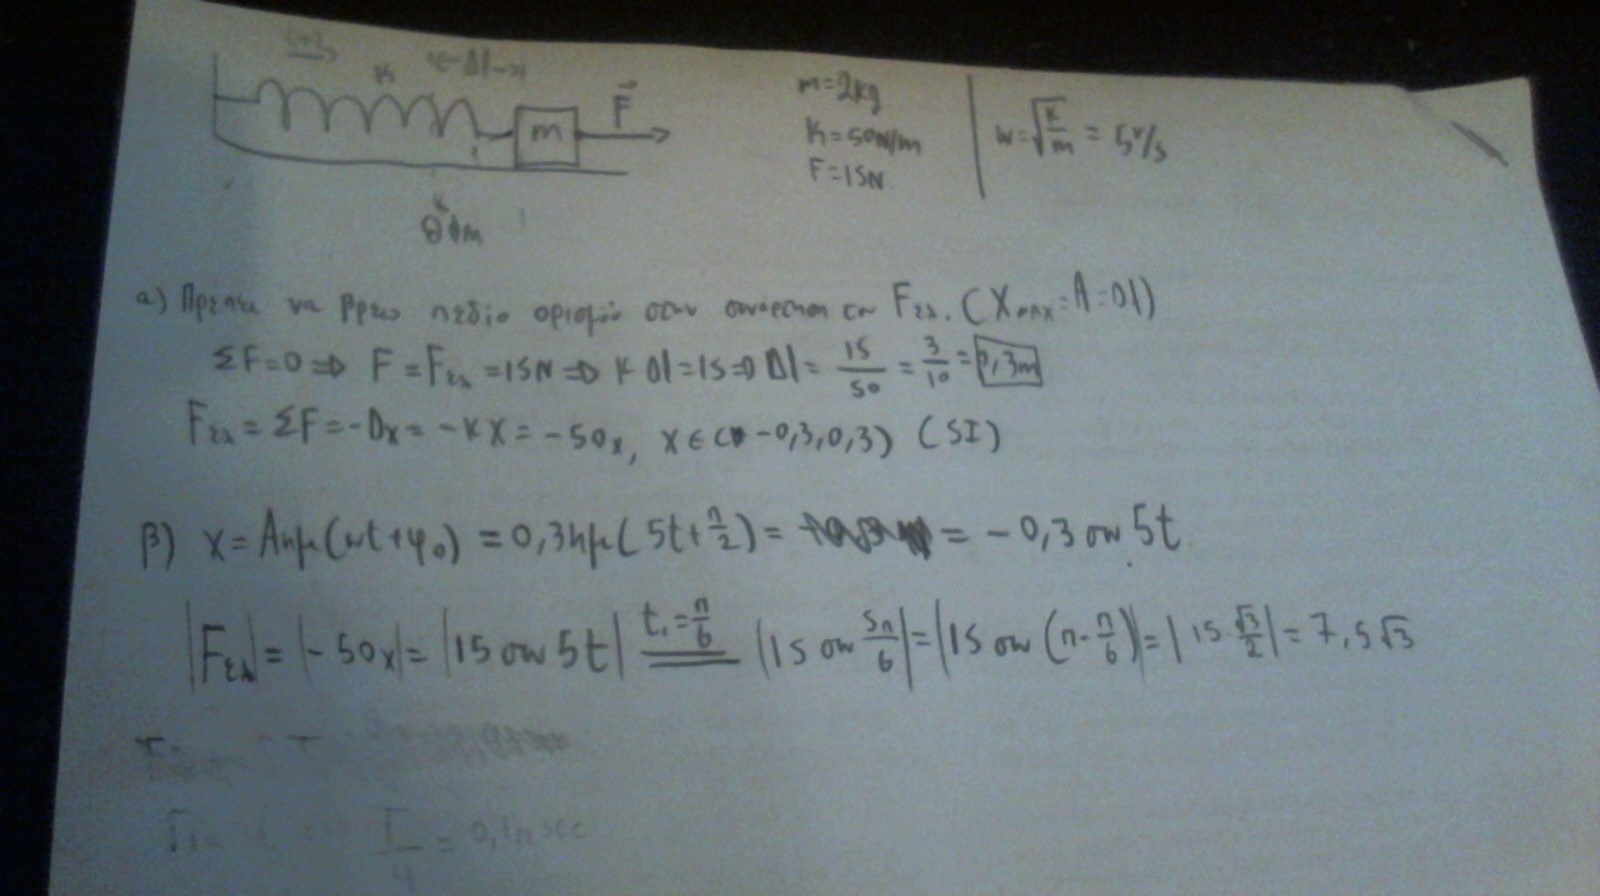 (+)
K ←Δl→
m F⃗
Θ Φm
m=2kg
K=50N/m
F=15N
w=√(K/m) = 5r/s
α) Πρέπει να βρεω πεδίο ορισμού στην συνάρτηση της Fελ. (Xmax=A=Δl)
ΣF=0 ⇒ F=Fελ=15N ⇒ KΔl=15 ⇒ Δl= 15/50 = 3/10 = 0,3m
Fελ=ΣF=-Dx=-Kx=-50x, x∈(-0,3,0,3) (SI)
β) x=Αημ(wt+φ0) =0,3ημ(5t+π/2)= = -0,3συν5t
|Fελ|=|-50x|=|15συν5t| t1=π/6 |15συν 5π/6|=|15συν(π-π/6)|=|15·√3/2|=7,5√3
T/4 = 0,1π sec